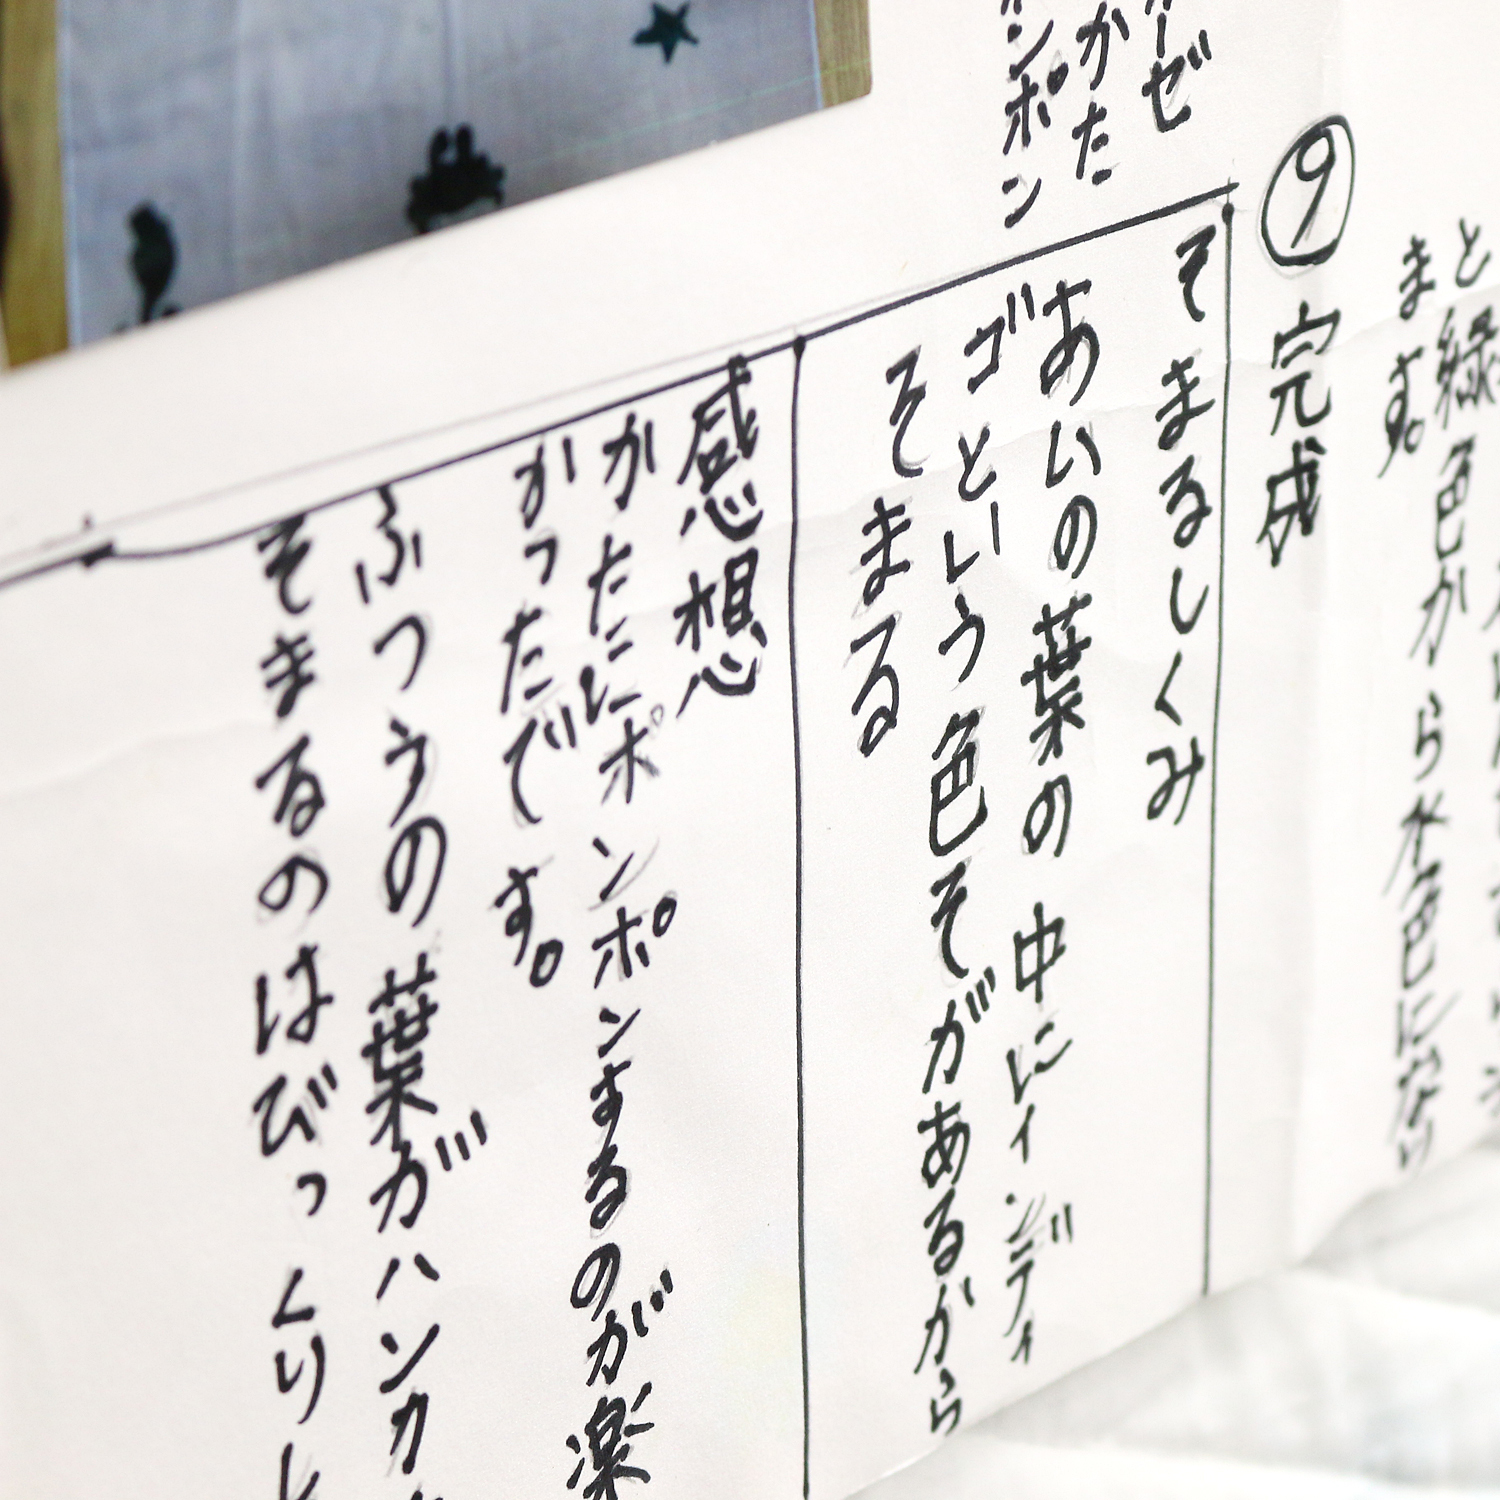 と緑色から水色になり
ます。
⑨完成
ーゼ
かた
ンポン
そまるしくみ
あいの葉の中にインディ
ゴという色そがあるから
そまる
感想
かたにポンポンするのが楽
かったです。
ふつうの葉がハンカ
そまるのはびっくりし